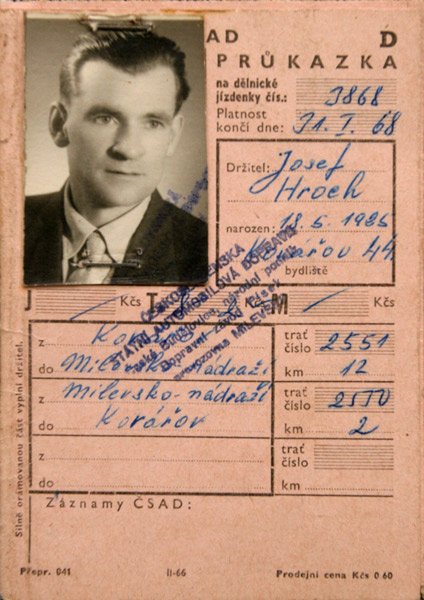 AD D
PRŮKAZKA
na dělnické
jízdenky čís.: 3868
Platnost
končí dne: 31. I. 68
Držitel: Josef
Hroch
narozen: 18. 5. 1925
Kovářov 44
bydliště
J Kčs T Kčs M Kčs
z
do Milevsko nádraží
trať
číslo 2551
km 12
z Milevsko-nádraží
do Kovářov
trať
číslo 2550
km 2
z
do
trať
číslo
km
ČESKOSLOVENSKÁ
STÁTNÍ AUTOMOBILOVÁ DOPRAVA
České Budějovice, národní podnik
Dopravní závod
provozovna MILEVSKO
Záznamy ČSAD:
Silně orámovanou část vyplní držitel.
Přepr. 041 II-66 Prodejní cena Kčs 0.60